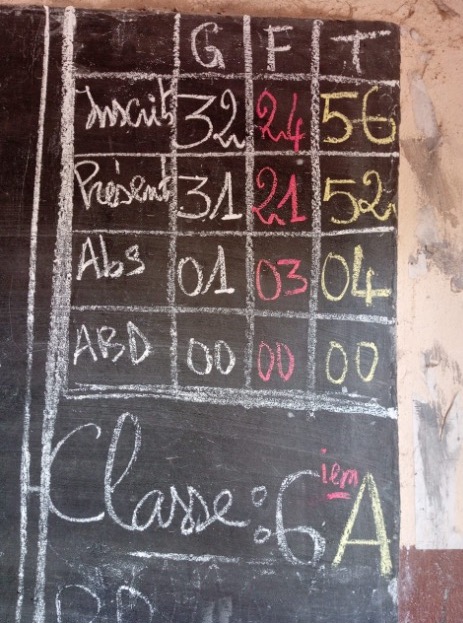 G F T
Inscrit 32 24 56
Présent 31 21 52
Abs 01 03 04
ABD 00 00 00
Classe : 6iem A